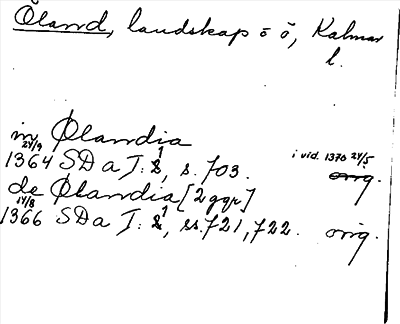 Öland, landskap o ö, Kalmar
l.
in Ølandia
24/9
1364 SD a I: 1, s. 703. i vid. 1370 24/5
orig.
de Ølandia [2 ggr]
14/8
1366 SD a I: 1, ss. 721, 722. orig.